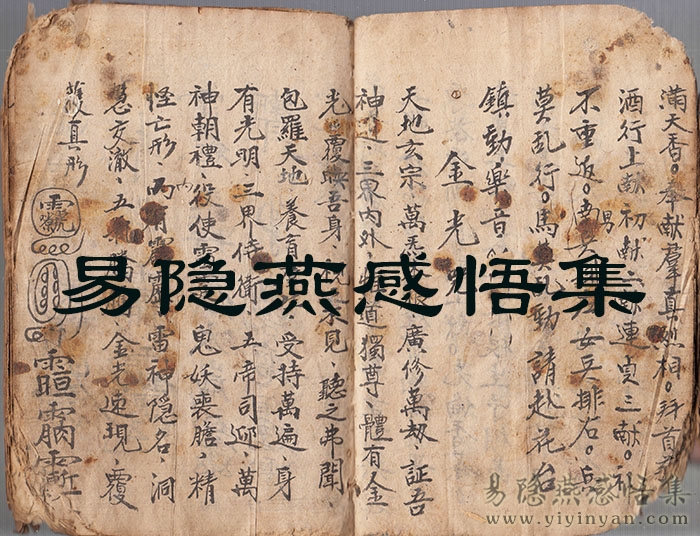 满天香。奉献羣真烈相。拜首
酒行上献初献二献連贡三献。礼
不重返。男 女兵排右。兵
莫乱行。馬莫 動請赴花台
鎮動樂音
金光
天地玄宗、萬炁 根廣修萬劫、証吾
神通、三界内外 道獨尊、體有金
光、覆映吾身、視 不見、聽之弗聞、
包羅天地 養育 受持萬遍、身
有光明、三界侍衛 五帝司迎、萬
神朝禮、役使雷 鬼妖喪膽、精
怪亡形 内有霹靂 雷神隐名、洞
慧交澈、五 金光速現 覆
護真形
易隐燕感悟集
易隐燕感悟集
www.yiyinyan.com